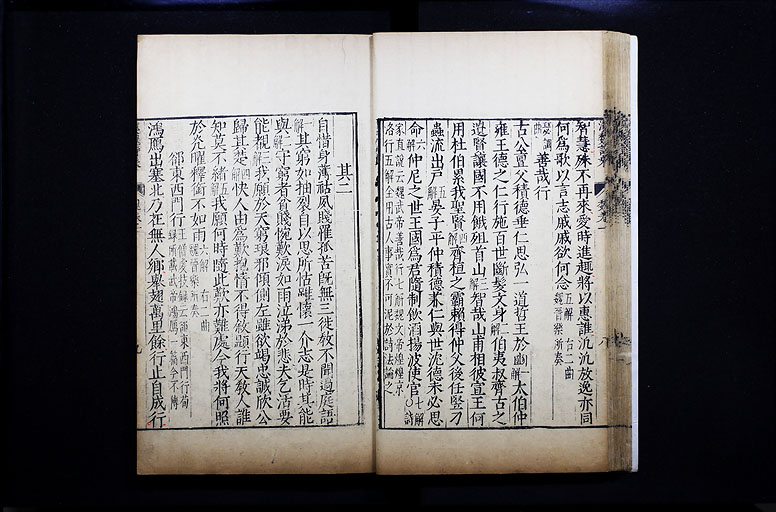 智慧殊不再來愛時進趣將以惠誰汎汎放逸亦同
何為歌以言志戚戚欲何念五解 右二曲魏晉樂所奏
善哉行
古公亶父積德垂仁思弘一道哲王於豳一解太伯仲
雍王德之仁行施百世斷髮文身二解伯夷叔齊古之
遺賢讓國不用餓殂首山三解智哉山甫相彼宣王何
用杜伯累我聖賢四解齊桓之霸賴得仲父後任豎刁
蟲流出戶五解晏子平仲積德兼仁與世沈德未必思
命六解仲尼之世王國為君隨制飲酒揚波使官七解
其二
自惜身薄祜夙賤罹孤苦既無三徙教不聞過庭語
一解其窮如抽裂自以思所怙雖懷一介志是時其能
與二解守窮者貧賤惋歎淚如雨泣涕於悲夫乞活安
能覩三解我願於天窮琅邪傾側左雖欲竭忠誠欣公
歸其楚四解快人由為歎抱情不得敘顯行天教人誰
知莫不緒五解我願何時隨此歎亦難處今我將何照
於光曜釋銜不如雨六解 右二曲魏晉樂所奏
郤東西門行
鴻鴈出塞北乃在無人鄉舉翅萬里餘行止自成行